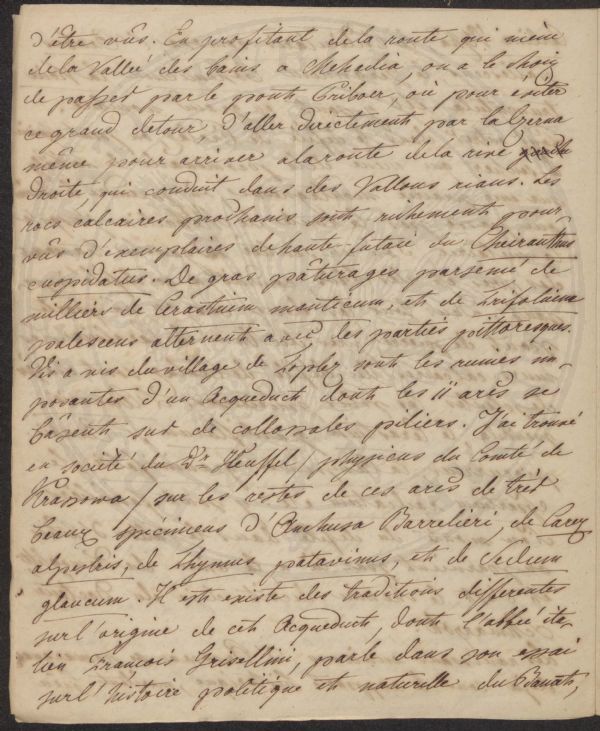 d'être vûs. En profitant de la route qui mène
de la Vallée des bains a Mehadia, on a le choix
de passer par le pont, où pour éviter
ce grand detour, d'aller directement par la Czerna
même pour arriver a la route de la rive
droite qui conduit dans des Vallons rians. Les
rocs calcaires sont richement pour-
vûs d'exemplaires de haute-futaie du Cheiranthus
cuspidatus. De gras pâturages parsemé de
milliers de Cerastium manticum, et de Trifolium
palescens alternent avec des parties pittoresques.
Vis a vis du village de Toplez sont les ruines im-
posantes d'un Acqueduct dont les 11 arcs se
bâsent sur de collossales piliers. J'ai trouvé
en société du Dr Heuffel / physicus du Comté de
Krassowa / sur les restes de ces arcs de très
beaux spécimens d'Anchusa Barrelieri, de Carex
alpestris, de Thymus patavinus, et de Sedum
glaucum. Il existe des traditions differentes
sur l'origine de cet Acqueduct, dont l'abbé ita-
lien François Grisellini, parle dans son essai
sur l'histoire politique et naturelle du Banat,